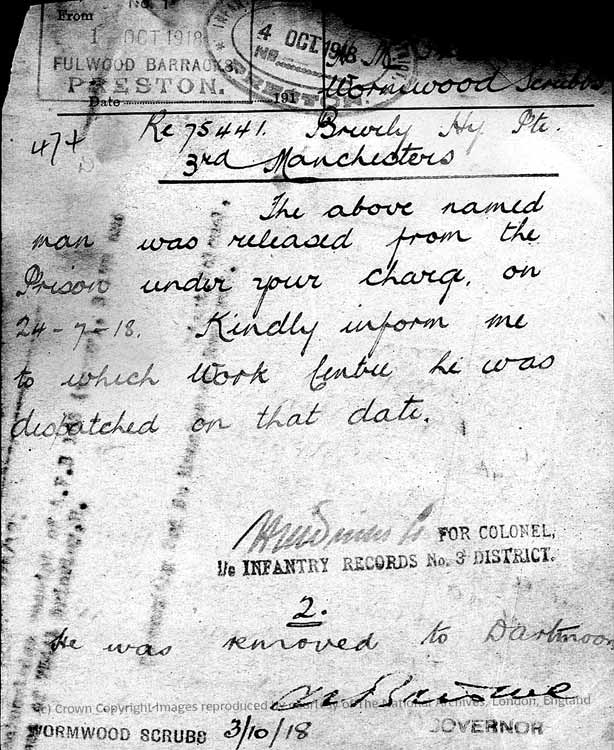 From
No. 1
1 OCT 1918
4 OCT. 1918
FULWOOD BARRACKS,
NO.
PRESTON.
PRESTON.
Date 191
Wormwood Scrubbs
474
Re 75441. Brierly Hy Pte.
3rd Manchesters
The above named
man was released from the
Prison under your charg, on
24-7-18. Kindly inform me
to which Work Centre he was
dispatched on that date.
FOR COLONEL,
I/c INFANTRY RECORDS No. 3 DISTRICT.
2.
He was removed to Dartmoor
(c) Crown Copyright Images reproduced by courtesy of The National Archives, London, England
WORMWOOD SCRUBS 3/10/18 GOVERNOR